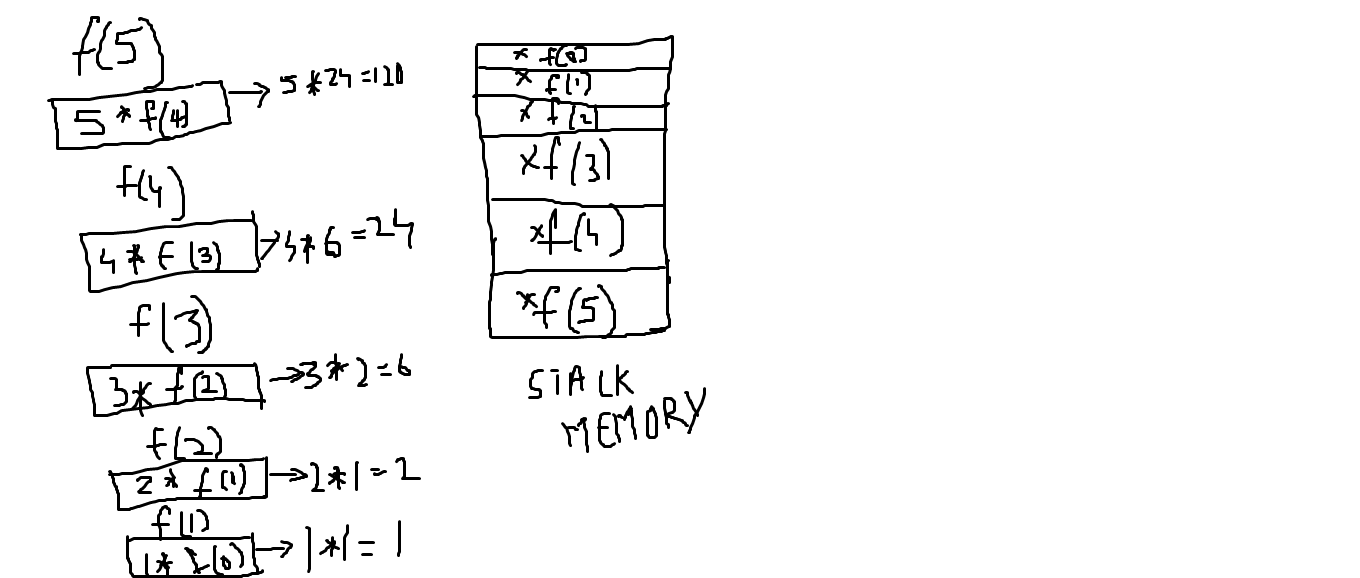 f(5)
5 * f(4) → 5 * 24 = 120
f(4)
4 * f(3) → 4 * 6 = 24
f(3)
3 * f(2) → 3 * 2 = 6
f(2)
2 * f(1) → 2 * 1 = 2
f(1)
1 * f(0) → 1 * 1 = 1
x f(0)
x f(1)
x f(2)
x f(3)
x f(4)
x f(5)
STALK
MEMORY